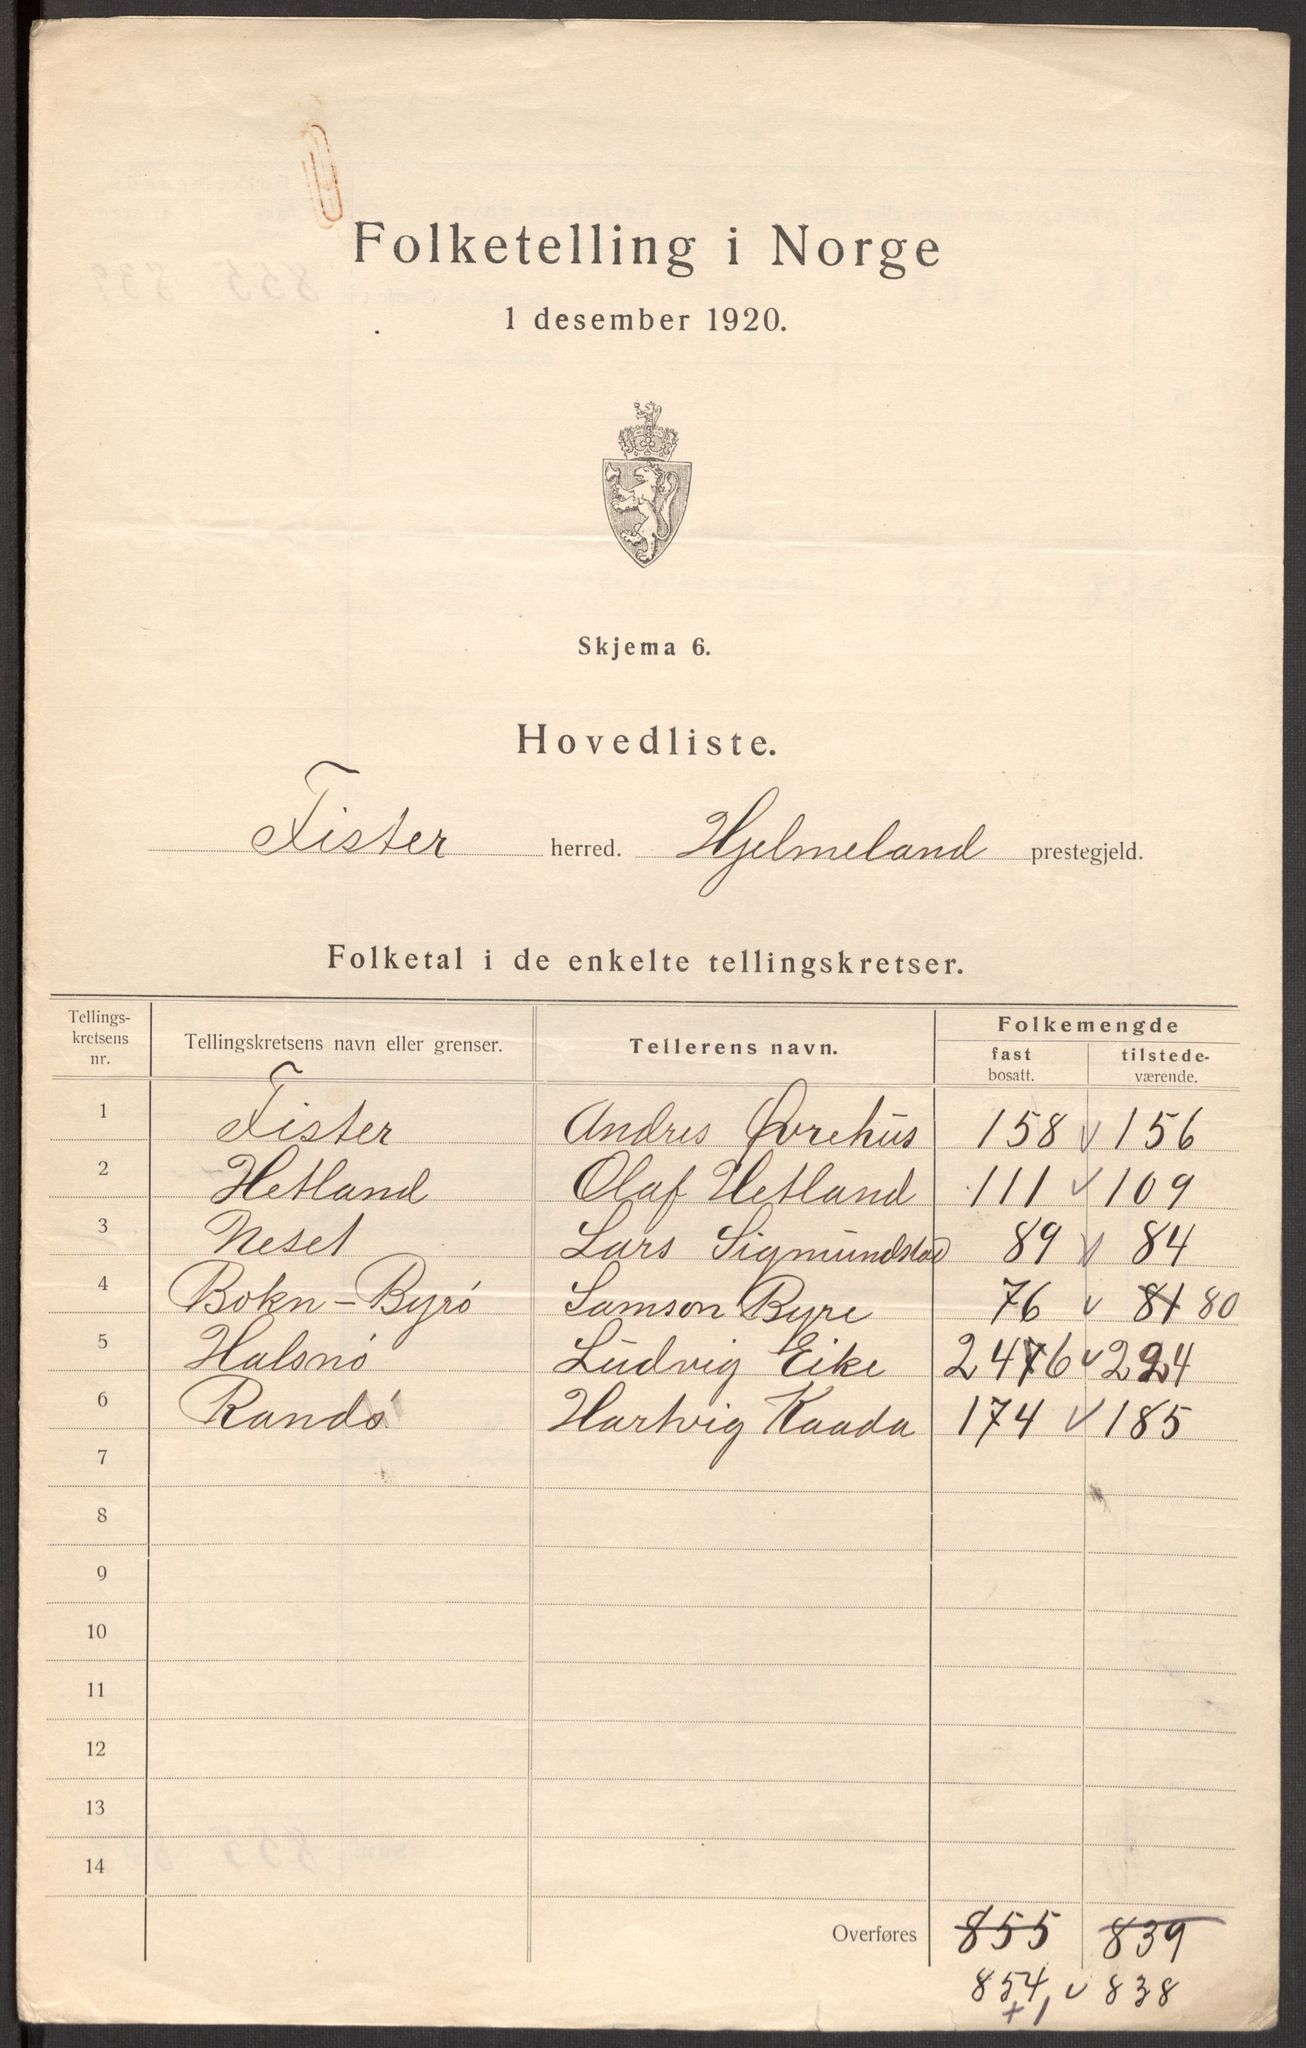 Folketelling i Norge
1 desember 1920.
Skjema 6.
Hovedliste.
Fister herred. Hjelmeland prestegjeld.
Folketal i de enkelte tellingskretser.
Tellings-
kretsens
nr.
Tellingskretsens navn eller grenser.
Tellerens navn.
Folkemengde
fast
bosatt.
tilstede-
værende.
1 Fister Andres Øvrehus 158 v 156
2 Hetland Olaf Hetland 111 v 109
3 Neset Lars Sigmundstad 89 v 84
4 Bokn-Byrø Samson Byre 76 v 81 80
5 Halsnø Ludvig Eike 2476 v 224
6 Randø Hartvig Kaada 174 v 185
7
8
9
10
11
12
13
14
Overføres 855 839
854 v 838
+1